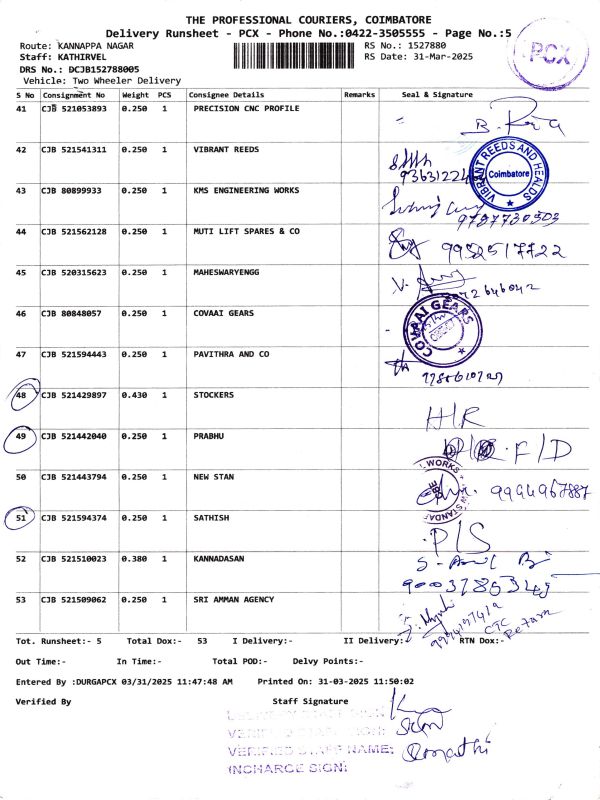 THE PROFESSIONAL COURIERS, COIMBATORE
Delivery Runsheet - PCX - Phone No.:0422-3505555 - Page No.:5
Route: KANNAPPA NAGAR RS No.: 1527880
Staff: KATHIRVEL RS Date: 31-Mar-2025
DRS No.: DCJB152788005
Vehicle: Two Wheeler Delivery
PCX
S No Consignment No Weight PCS Consignee Details Remarks Seal & Signature
41 CJB 521053893 0.250 1 PRECISION CNC PROFILE
42 CJB 521541311 0.250 1 VIBRANT REEDS
VIBRANT REEDS AND HEALDS Coimbatore
43 CJB 80899933 0.250 1 KMS ENGINEERING WORKS
9787730503
44 CJB 521562128 0.250 1 MUTI LIFT SPARES & CO 9952517722
45 CJB 520315623 0.250 1 MAHESWARYENGG
46 CJB 80848057 0.250 1 COVAAI GEARS
COVAAI GEARS
47 CJB 521594443 0.250 1 PAVITHRA AND CO
48 CJB 521429897 0.430 1 STOCKERS H/R
49 CJB 521442040 0.250 1 PRABHU F/D
50 CJB 521443794 0.250 1 NEW STAN 9994967887
51 CJB 521594374 0.250 1 SATHISH P/S
52 CJB 521510023 0.380 1 KANNADASAN
53 CJB 521509062 0.250 1 SRI AMMAN AGENCY
CTC
Return
Tot. Runsheet:- 5 Total Dox:- 53 I Delivery:- II Delivery:- RTN Dox:-
Out Time:- In Time:- Total POD:- Delvy Points:-
Entered By :DURGAPCX 03/31/2025 11:47:48 AM Printed On: 31-03-2025 11:50:02
Verified By Staff Signature
VERIFIED STAFF NAME: Gomathi
INCHARGE SIGN: